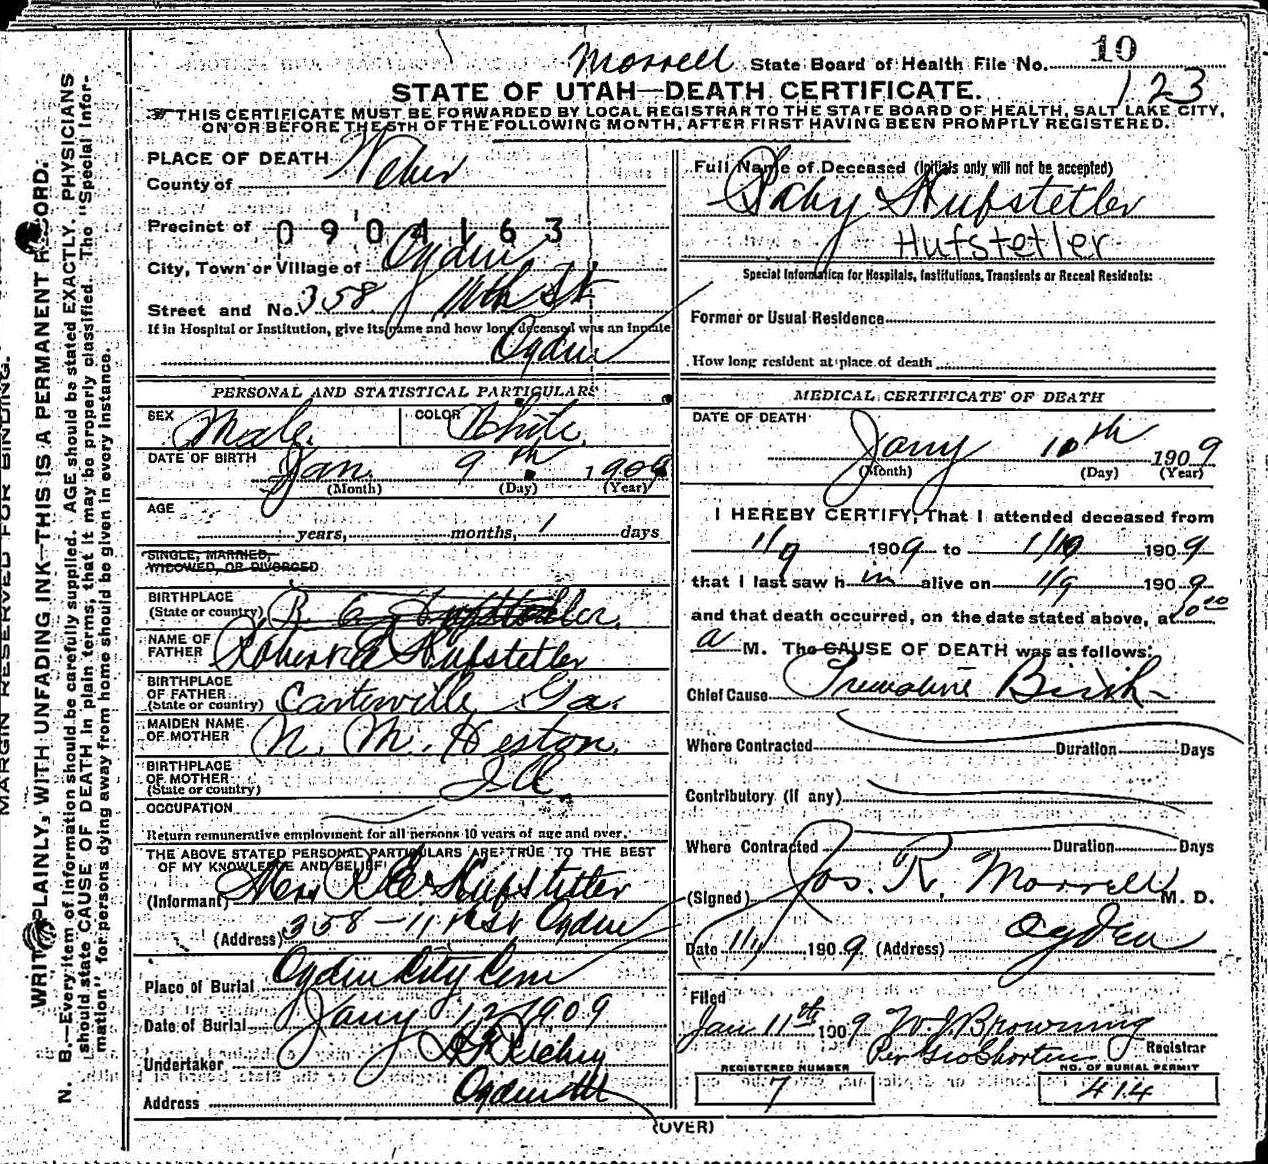 10
Morrell State Board of Health File No.
123
STATE OF UTAH—DEATH CERTIFICATE.
THIS CERTIFICATE MUST BE FORWARDED BY LOCAL REGISTRAR TO THE STATE BOARD OF HEALTH, SALT LAKE CITY,
ON OR BEFORE THE 5TH OF THE FOLLOWING MONTH, AFTER FIRST HAVING BEEN PROMPTLY REGISTERED.
MARGIN RESERVED FOR BINDING.
WRITE PLAINLY, WITH UNFADING INK—THIS IS A PERMANENT RECORD.
N. B.—Every item of information should be carefully supplied. AGE should be stated EXACTLY. PHYSICIANS
should state CAUSE OF DEATH in plain terms, that it may be properly classified. The "Special Infor-
mation" for persons dying away from home should be given in every instance.
PLACE OF DEATH
County of Weber
Precinct of
0904163
City, Town or Village of Ogden
Street and No. 358 11th St
If in Hospital or Institution, give its name and how long deceased was an inmate
Ogden
PERSONAL AND STATISTICAL PARTICULARS
SEX Male COLOR White
DATE OF BIRTH Jan. 9th 1909
(Month) (Day) (Year)
AGE
years, months, 1 days
SINGLE, MARRIED,
WIDOWED, OR DIVORCED
BIRTHPLACE
(State or country) R. E. Hufstetler.
NAME OF
FATHER Robert E Hufstetler
BIRTHPLACE
OF FATHER
(State or country) Cartersville Ga.
MAIDEN NAME
OF MOTHER N. M. Heston.
BIRTHPLACE
OF MOTHER
(State or country) Ill
OCCUPATION
Return remunerative employment for all persons 10 years of age and over.
THE ABOVE STATED PERSONAL PARTICULARS ARE TRUE TO THE BEST
OF MY KNOWLEDGE AND BELIEF
(Informant) Mrs R E Hufstetler
(Address) 358 – 11th St Ogden
Place of Burial Ogden City Cem
Date of Burial Jany 12 1909
Undertaker
Address Ogden Ut
Full Name of Deceased (Initials only will not be accepted)
Baby Hufstetler
Hufstetler
Special Information for Hospitals, Institutions, Transients or Recent Residents:
Former or Usual Residence
How long resident at place of death
MEDICAL CERTIFICATE OF DEATH
DATE OF DEATH
Jany 10th 1909
(Month) (Day) (Year)
I HEREBY CERTIFY, That I attended deceased from
1/9 1909 to 1/10 1909
that I last saw him alive on 1/9 1909
and that death occurred, on the date stated above, at
a M. The CAUSE OF DEATH was as follows:
Chief Cause Premature Birth
Where Contracted Duration Days
Contributory (if any)
Where Contracted Duration Days
(Signed) Jos. R. Morrell M. D.
Date 1/11 1909 (Address) Ogden
Filed
Jan 11th 1909 W J Browning
Registrar
REGISTERED NUMBER
7
NO. OF BURIAL PERMIT
414
(OVER)